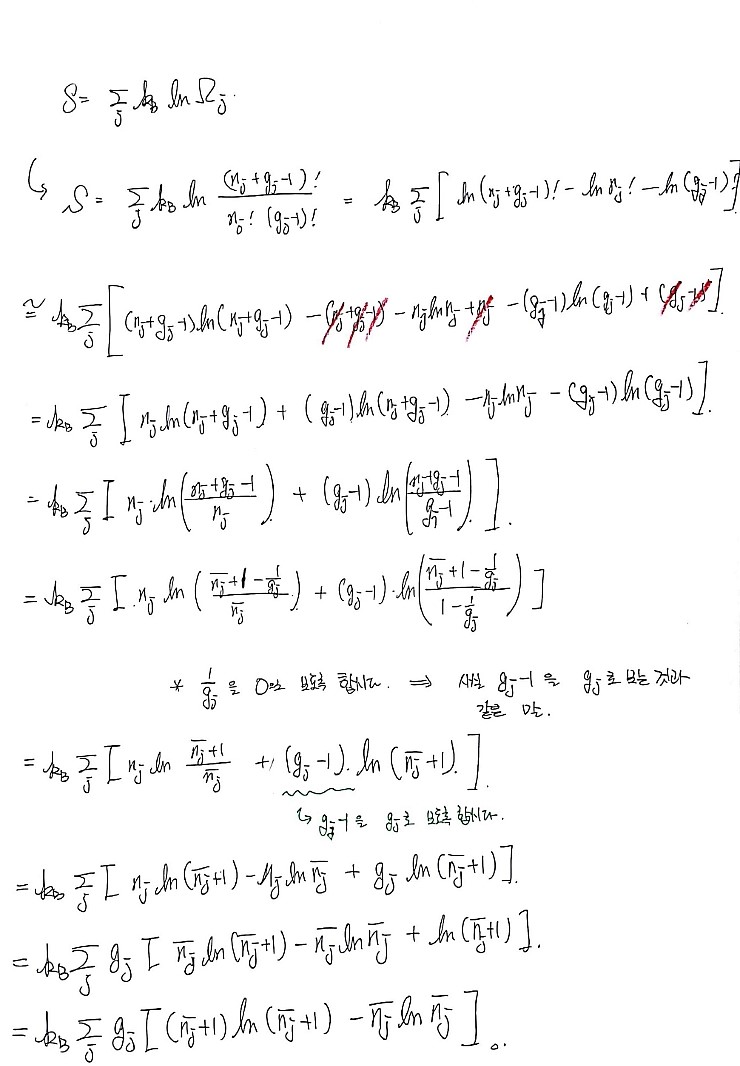 S = Σ_j k_B ln Ω_j.
↳ S = Σ_j k_B ln (n_j+g_j-1)! / n_j! (g_j-1)! = k_B Σ_j [ ln (n_j+g_j-1)! - ln n_j! - ln (g_j-1)! ]
≅ k_B Σ_j [ (n_j+g_j-1) ln (n_j+g_j-1) - (n_j+g_j-1) - n_j ln n_j + n_j - (g_j-1) ln (g_j-1) + (g_j-1) ].
= k_B Σ_j [ n_j ln (n_j+g_j-1) + (g_j-1) ln (n_j+g_j-1) - n_j ln n_j - (g_j-1) ln (g_j-1) ].
= k_B Σ_j [ n_j · ln ( (n_j+g_j-1) / n_j ) + (g_j-1) ln ( (n_j+g_j-1) / (g_j-1) ) ].
= k_B Σ_j [ n_j ln ( (n̄_j+1-1/g_j) / n̄_j ) + (g_j-1) · ln ( (n̄_j+1-1/g_j) / (1-1/g_j) ) ]
* 1/g_j 을 0으로 보도록 합시다. ⇒ 사실 g_j-1 을 g_j로 보는 것과
같은 말.
= k_B Σ_j [ n_j ln (n̄_j+1) / n̄_j + (g_j-1) · ln (n̄_j+1) ].
↳ g_j-1 을 g_j로 보도록 합시다.
= k_B Σ_j [ n_j ln (n̄_j+1) - n_j ln n̄_j + g_j ln (n̄_j+1) ].
= k_B Σ_j g_j [ n̄_j ln (n̄_j+1) - n̄_j ln n̄_j + ln (n̄_j+1) ].
= k_B Σ_j g_j [ (n̄_j+1) ln (n̄_j+1) - n̄_j ln n̄_j ].